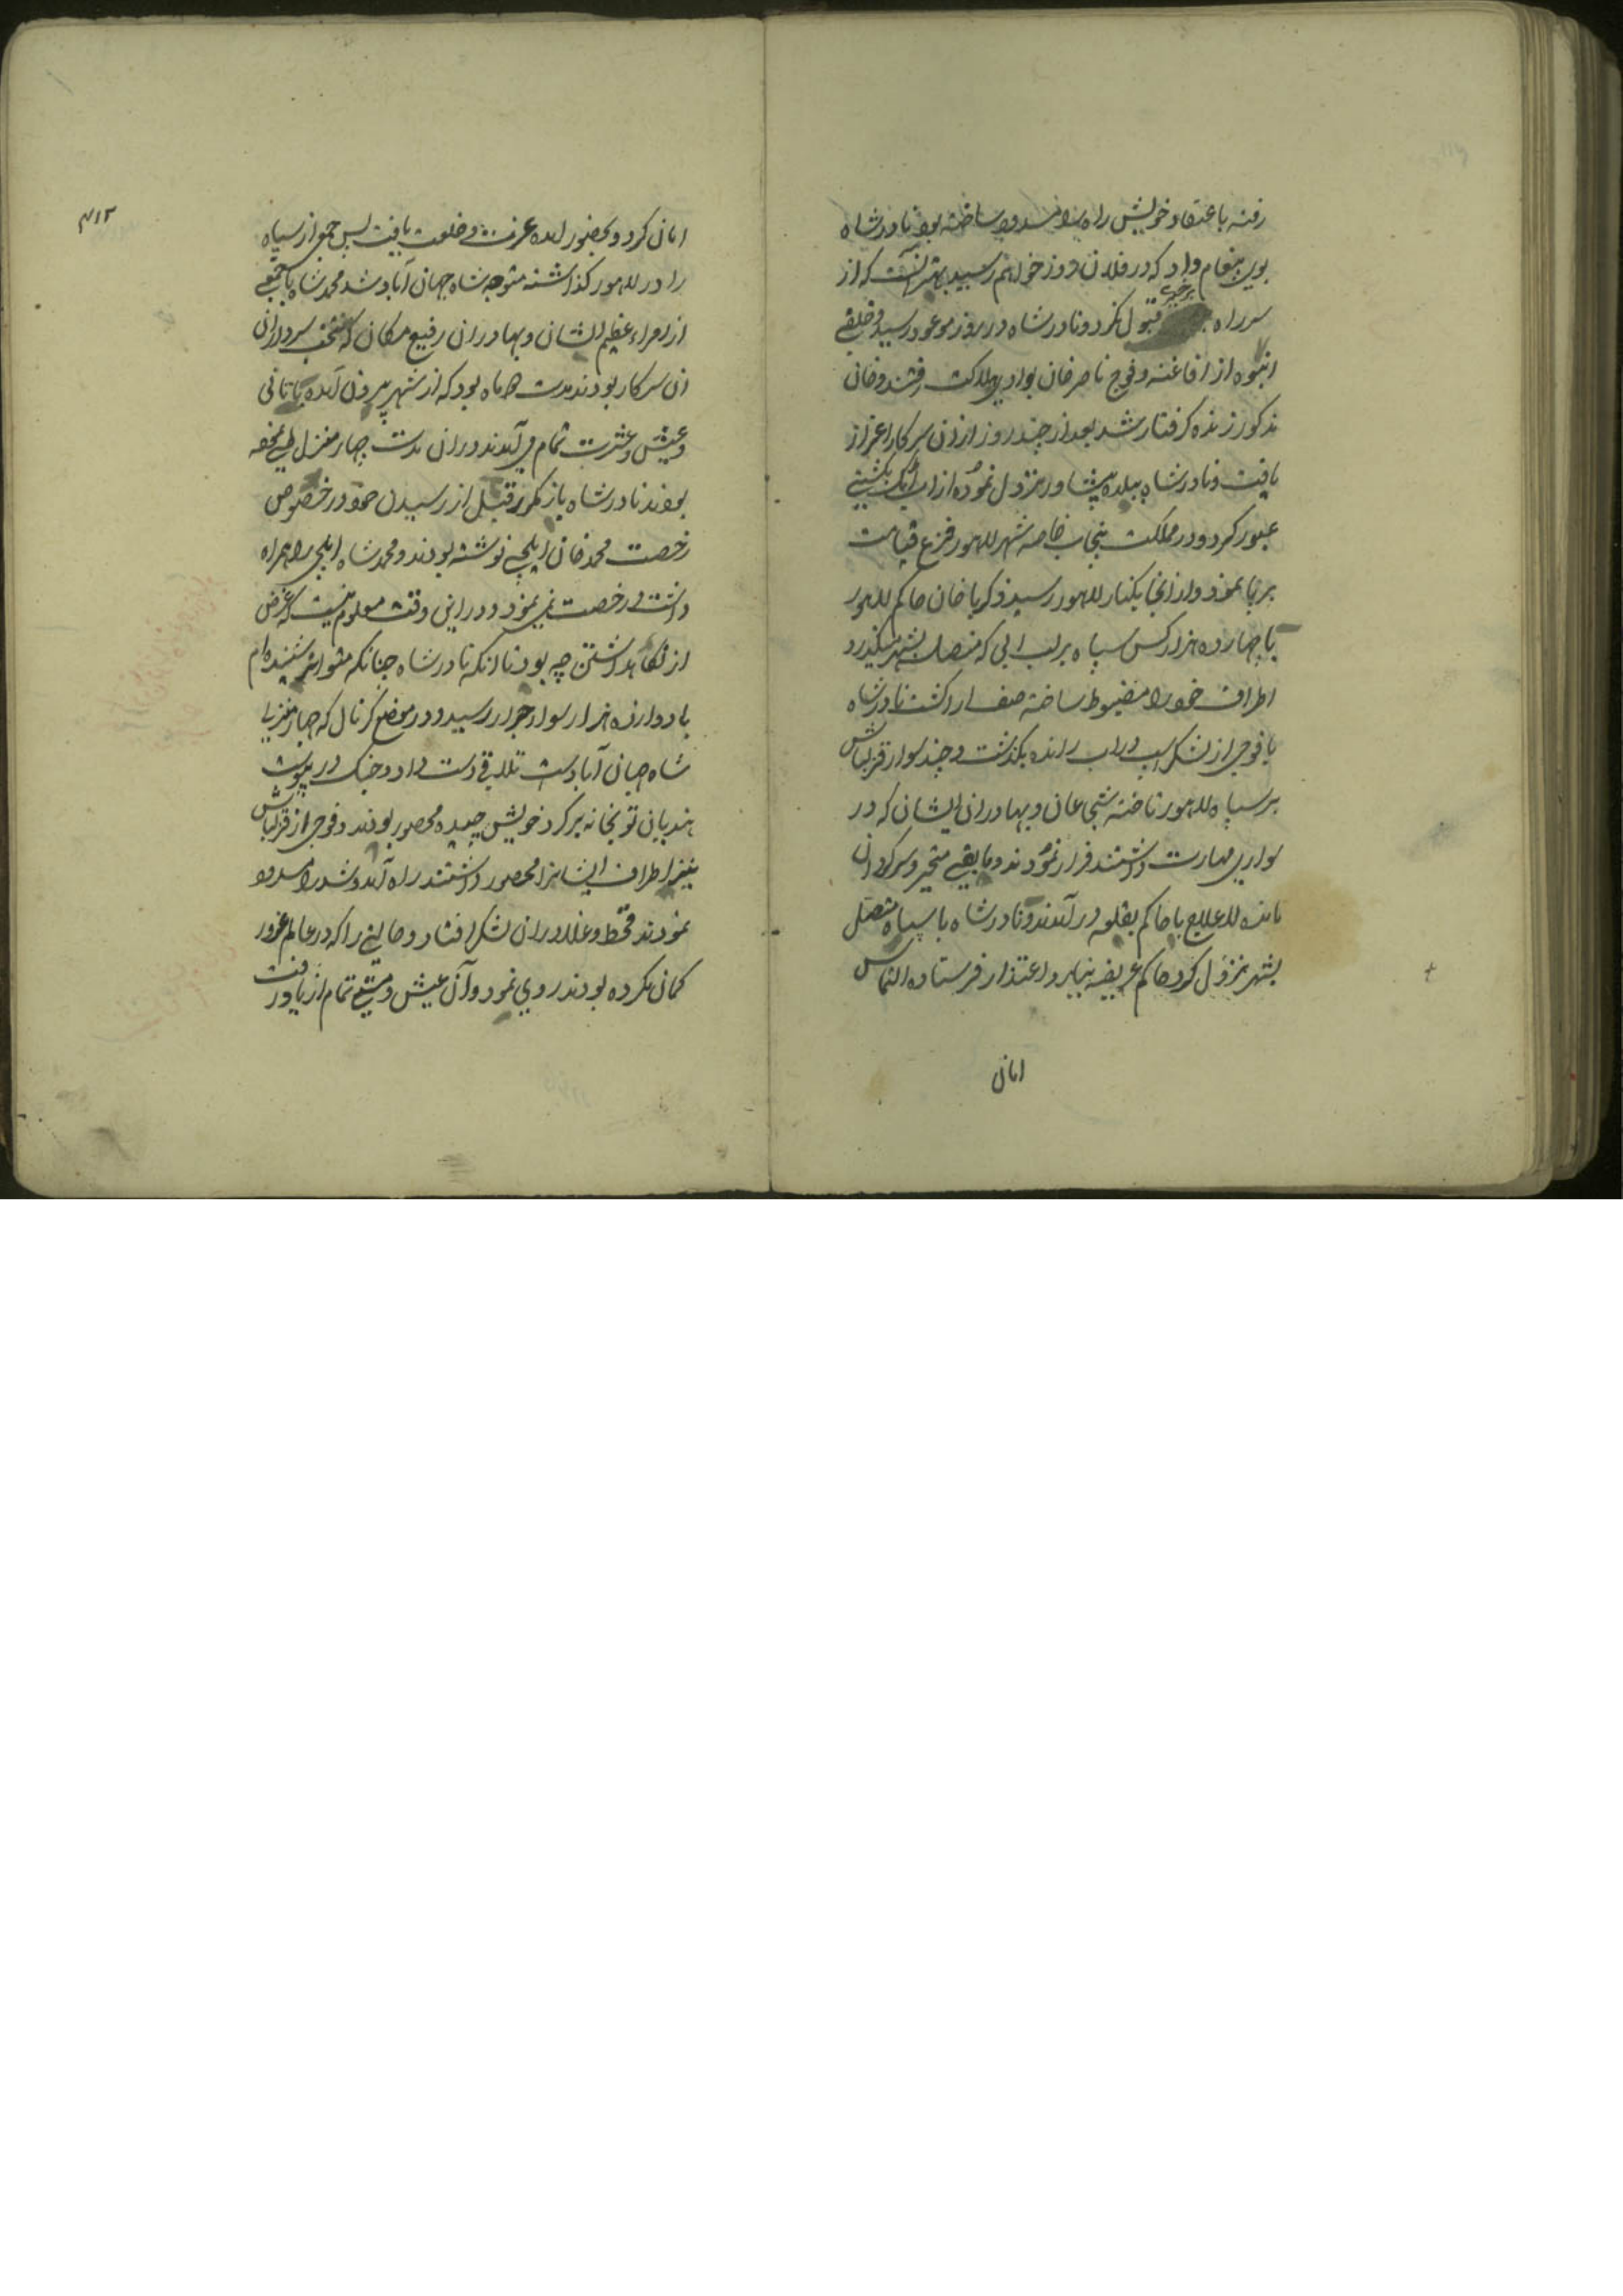 رفته باعتقاد خویش راه را مسدود ساخته بود نادرشاه
بوی پیغام داد که در فلان روز خواهم رسید بهتر آنست که از
سر راه برخیزی قبول نکرد و نادرشاه در روز موعود رسید و خلقی
انبوه از افاغنه و فوج ناصرخان بوادی هلاکت رفتند و خان
مذکور زنده گرفتار شد بعد از چند روز از ان سرکار اعزاز
یافت و نادرشاه ببلده پیشاور نزول نموده از اب اتک بکشتی
عبور کرد و در مملکت پنجاب خاصه شهر لاهور فزع قیامت
برپا نمود و از انجا بکنار لاهور رسید ذکریاخان حاکم لاهور
با چهارده هزار کس سپاه بر لب ابی که متصل بشهر میگذرد
اطراف خود را مضبوط ساخته صف ارا گشت نادرشاه
با فوجی از لشکر اسپ در اب رانده بگذشت و چند سوار قزلباش
بر سپاه لاهور تاخته شجاعان و بهادران ایشان که در
سواری مهارت داشتند فرار نمودند و مابقی متحیر و سرگردان
مانده لاعلاج با حاکم بقلعه در آمدند و نادرشاه با سپاه متصل
بشهر نزول کرد حاکم عریضه نیاز و اعتذار فرستاده التماس
امان
۳۱۲
امان کرد و بحضور امده عزت و خلعت یافت پس جمعی از سپاه
را در لاهور گذاشته متوجه شاه جهان آباد شد محمدشاه با جمعی
از امراء عظیم الشان و بهادران رفیع مکان که منتخب سرداران
ان سرکار بودند مدت ماه بود که از شهر بیرون آمده با تانی
و عیش و عشرت تمام می آمدند و در ان مدت چهار منزل طی
بودند نادرشاه باز مکرر قبل از رسیدن خود در خصوص
رخصت محمدخان ایلچی نوشته بودند و محمدشاه ایلچی را همراه
داشت و رخصت نمی نمود و در این وقت معلوم نیست که غرض
از نگاه داشتن چه بود تا انکه نادرشاه چنانکه متواتر شنیده ام
با دوازده هزار سوار جرار رسید و در موضع کرنال که چهار منزلی
شاه جهان آبادست تلاقی دست داد و جنگ در پیوست
هندیان توپخانه بر گرد خویش چیده محصور بودند و فوجی از قزلباش
نیز اطراف ایشانرا محصور داشتند راه آمد و شد را مسدود
نمودند قحط و غلا در ان لشکر افتاد و حالتی را که در عالم غرور
گمان نکرده بودند روی نمود و آن عیش و مستی تمام از یاد رفت